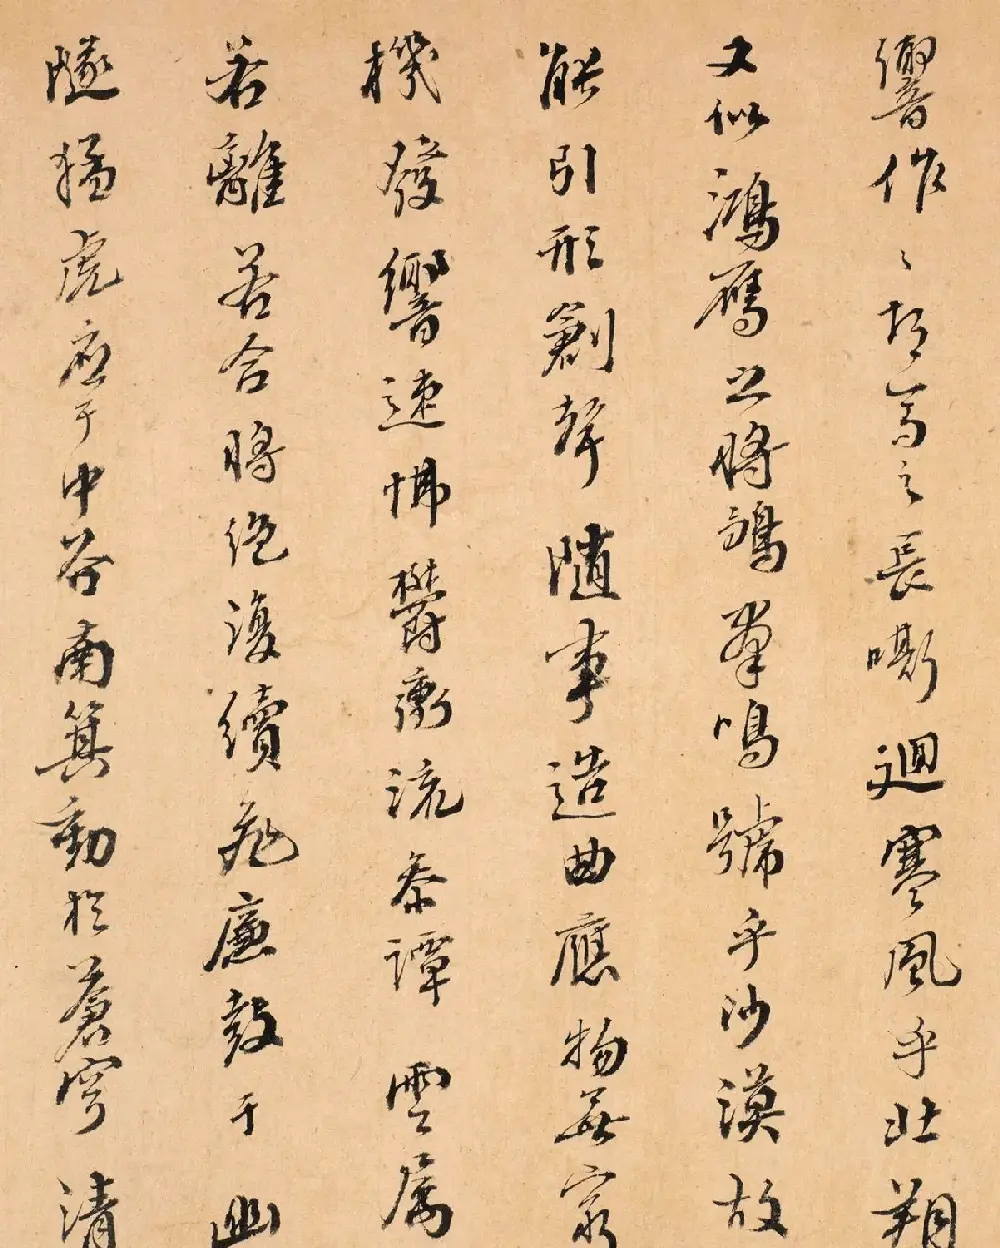 響作胡馬之長嘶迴寒風乎北朔
又似鴻鴈之將鶵羣鳴號乎沙漠故
能引形創聲隨事造曲應物無窮
機發響速怫鬱衝流參譚雲属
若離若合將絕復續飛廉鼓于幽
隧猛虎應于中谷南箕動於蒼穹清